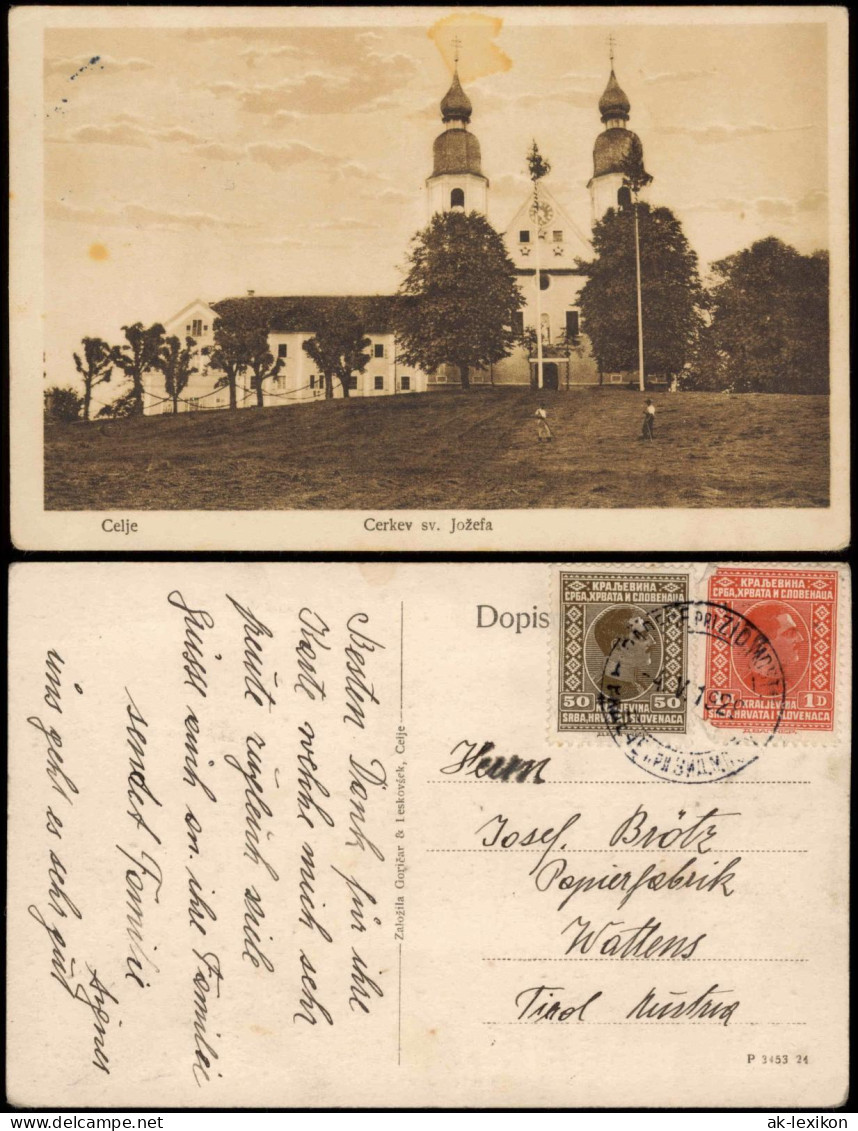 Celje
Cerkev sv. Jožefa
Dopis
КРАЉЕВИНА
СРБА, ХРВАТА И СЛОВЕНАЦА
50 50
KRALJEVINA
SRBA, HRVATA I SLOVENACA
КРАЉЕВИНА
СРБА, ХРВАТА И СЛОВЕНАЦА
1D
KRALJEVINA
SRBA, HRVATA I SLOVENACA
Besten Dank für ihre
Karte mich sehr
freute zugleich viele
Grüsse an ihre Familie
sendet Familie
Agnes
uns geht es sehr gut
Založila Goričar & Leskovšek, Celje
Herrn
Josef Brötz
Papierfabrik
Wattens
Tirol Austria
P 3453 24
ak-lexikon